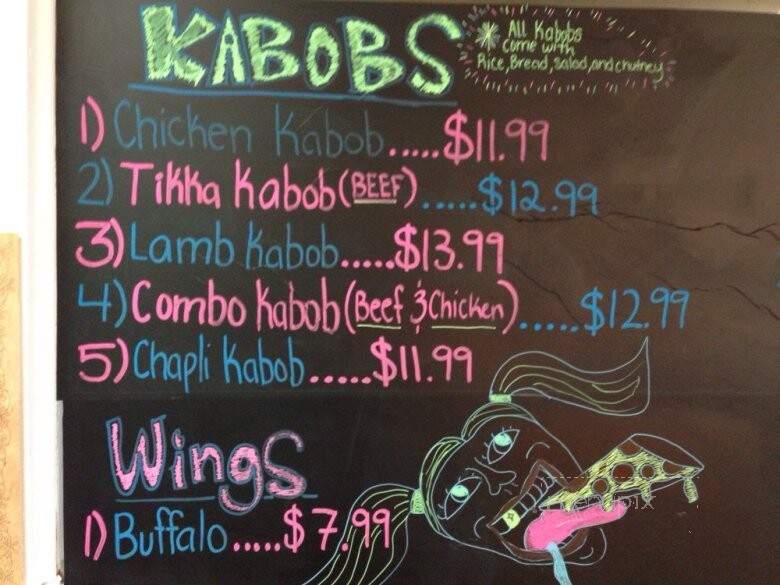 KABOBS
* All Kabobs
come with
Rice, Bread, Salad, and chutney
1) Chicken Kabob.....$11.99
2) Tikka Kabob (BEEF).....$12.99
3) Lamb Kabob.....$13.99
4) Combo Kabob (Beef & Chicken).....$12.99
5) Chapli Kabob.....$11.99
Wings
1) Buffalo.....$7.99